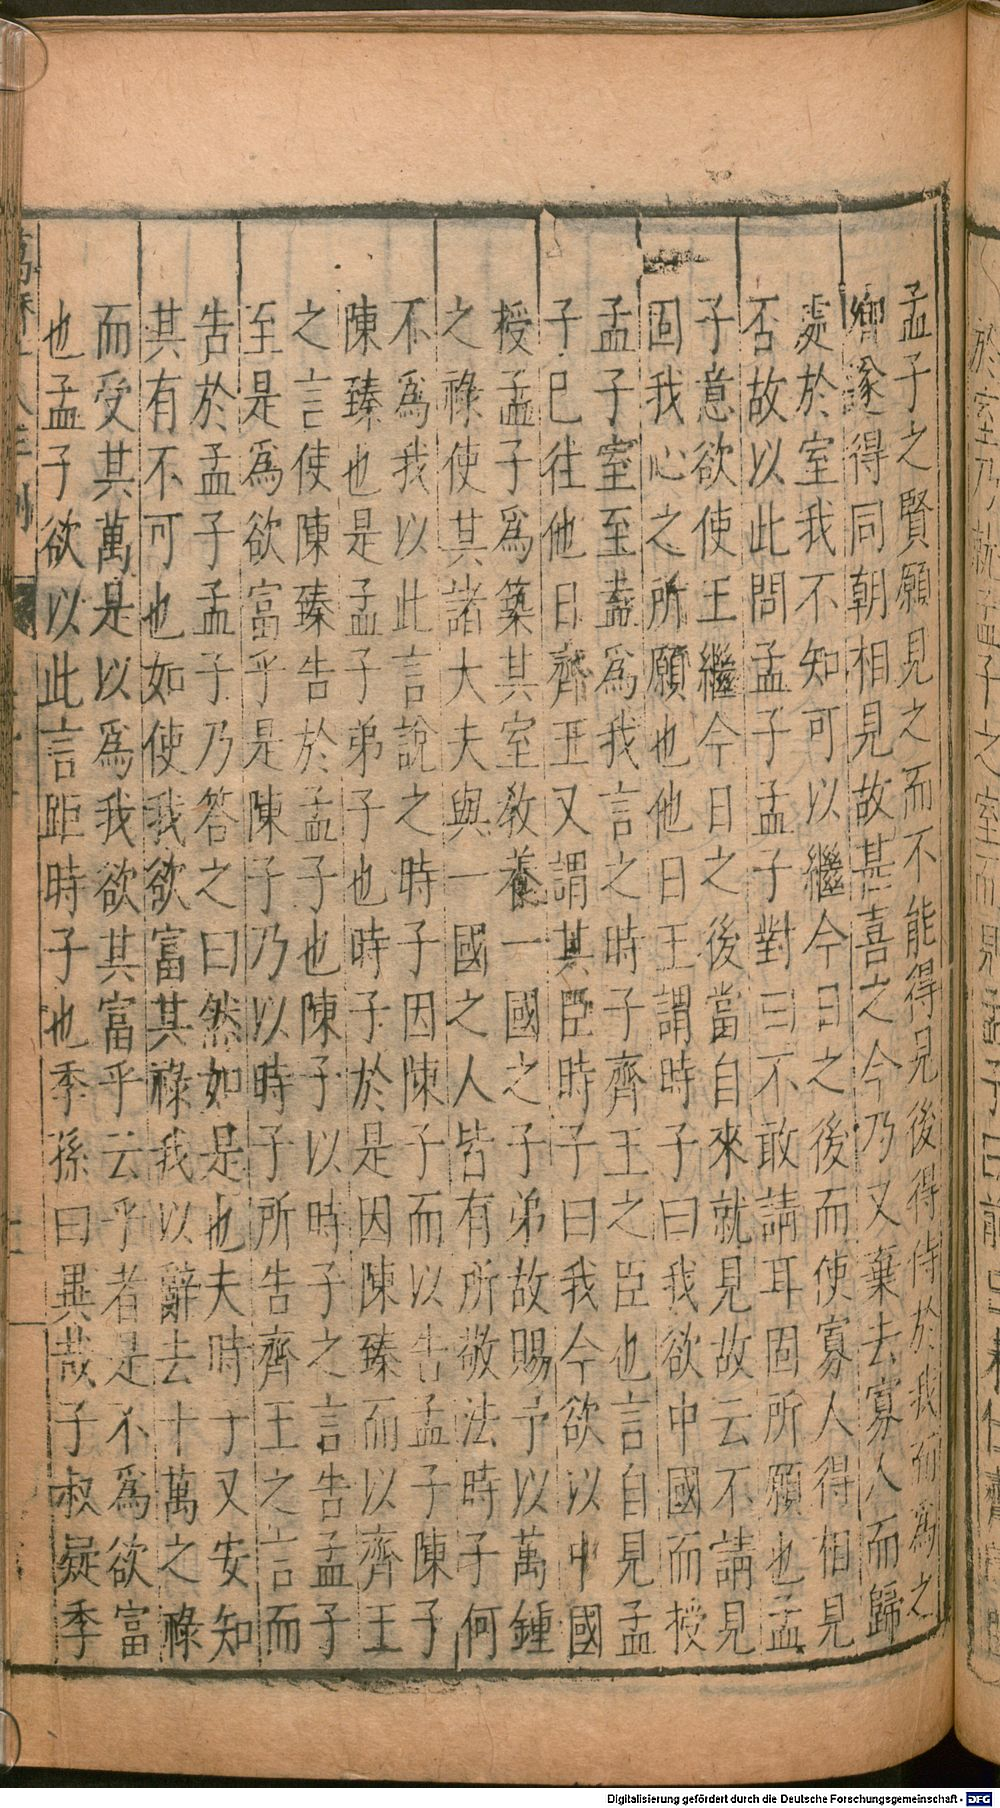 孟子之賢願見之而不能得見後得侍於我而爲之
卿遂得同朝相見故甚喜之今乃又棄去寡人而歸
處於室我不知可以繼今日之後而使寡人得相見
否故以此問孟子孟子對曰不敢請耳固所願也孟
子意欲使王繼今日之後當自來就見故云不請見
固我心之所願也他日王謂時子曰我欲中國而授
孟子室至盍爲我言之時子齊王之臣也言自見孟
子已往他日齊王又謂其臣時子曰我今欲以中國
授孟子爲築其室教養一國之子弟故賜予以萬鍾
之祿使其諸大夫與一國之人皆有所敬法時子何
不爲我以此言說之時子因陳子而以告孟子陳子
陳臻也是孟子弟子也時子於是因陳臻而以齊王
之言使陳臻告於孟子也陳子以時子之言告孟子
至是爲欲富乎是陳子乃以時子所告齊王之言而
告於孟子孟子乃答之曰然如是也夫時子又安知
其有不可也如使我欲富其祿我以辭去十萬之祿
而受其萬是以爲我欲其富乎云乎者是不爲欲富
也孟子欲以此言距時子也季孫曰異哉子叔疑季
Digitalisierung gefördert durch die Deutsche Forschungsgemeinschaft - DFG